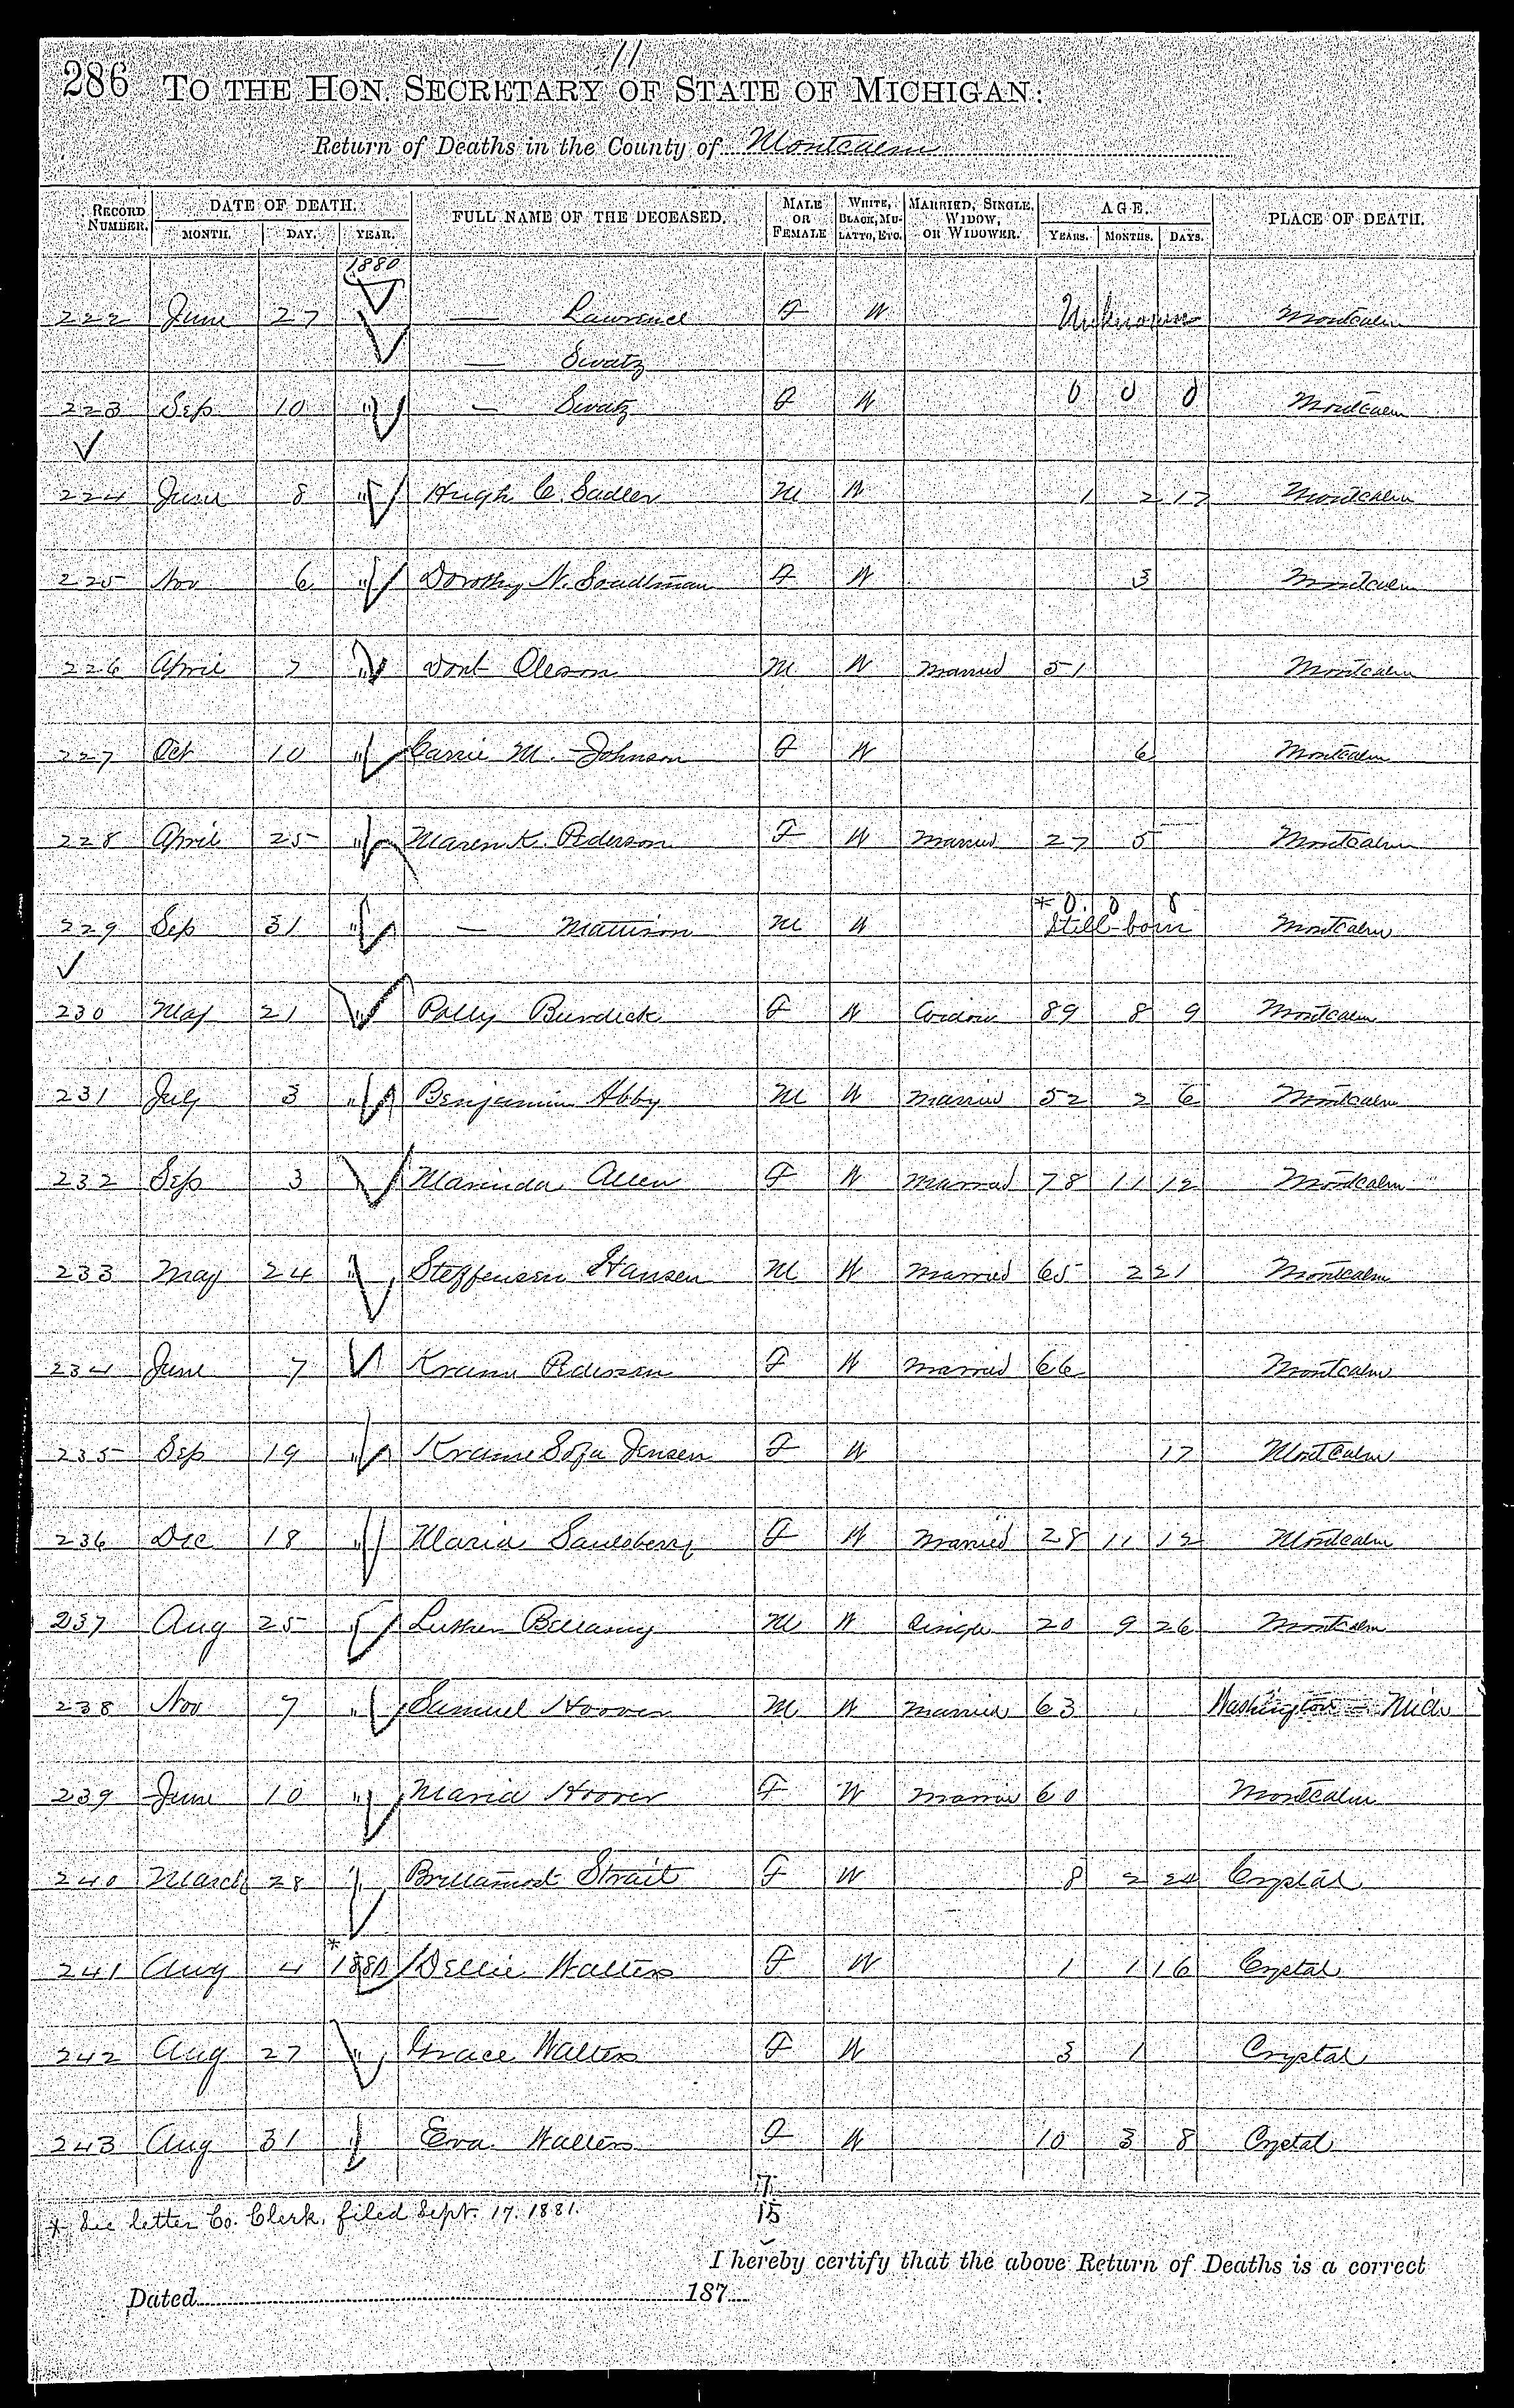 11
286 TO THE HON. SECRETARY OF STATE OF MICHIGAN:
Return of Deaths in the County of Montcalm
RECORD NUMBER. DATE OF DEATH. MONTH. DAY. YEAR. FULL NAME OF THE DECEASED. MALE OR FEMALE WHITE, BLACK, MULATTO, ETC. MARRIED, SINGLE, WIDOW, OR WIDOWER. AGE. YEARS. MONTHS. DAYS. PLACE OF DEATH.
1880
222 June 27 — Lawrence F W Unknown Montcalm
— Swatz
223 Sep 10 " — Swatz F W 0 0 0 Montcalm
224 June 8 " Hugh C. Sadler M W 1 2 17 Montcalm
225 Nov 6 " Dorothy N. F W 3 Montcalm
226 April 7 " Oleson M W Married 51 Montcalm
227 Oct 10 " Carrie M. Johnson F W 6 Montcalm
228 April 25 " Maren K. Pederson F W Married 27 5 Montcalm
* 0 0 0
229 Sep 31 " — Mattison M W Still-born Montcalm
230 May 21 " Polly Burdick F W Widow 89 8 9 Montcalm
231 July 3 " Benjamin Abby M W Married 52 2 6 Montcalm
232 Sep 3 Marinda Allen F W Married 78 11 12 Montcalm
233 May 24 " Steffensen Hansen M W Married 65 2 21 Montcalm
234 June 7 Pedersen F W Married 66 Montcalm
235 Sep 19 " Sofa Jensen F W 17 Montcalm
236 Dec 18 " Maria Saulsberry F W Married 28 11 12 Montcalm
237 Aug 25 " Luther Bellamy M W Single 20 9 26 Montcalm
238 Nov 7 " Samuel Hoover M W Married 63 Washington - Mich
239 June 10 " Maria Hoover F W Married 60 Montcalm
240 March 28 " Strait F W 8 2 24 Crystal
241 Aug 4 * 1880 Dellie Walters F W 1 1 16 Crystal
242 Aug 27 " Grace Walters F W 3 1 Crystal
243 Aug 31 " Eva Walters F W 10 3 8 Crystal
7
15
* See letter Co. Clerk, filed Sept. 17. 1881.
I hereby certify that the above Return of Deaths is a correct
Dated 187